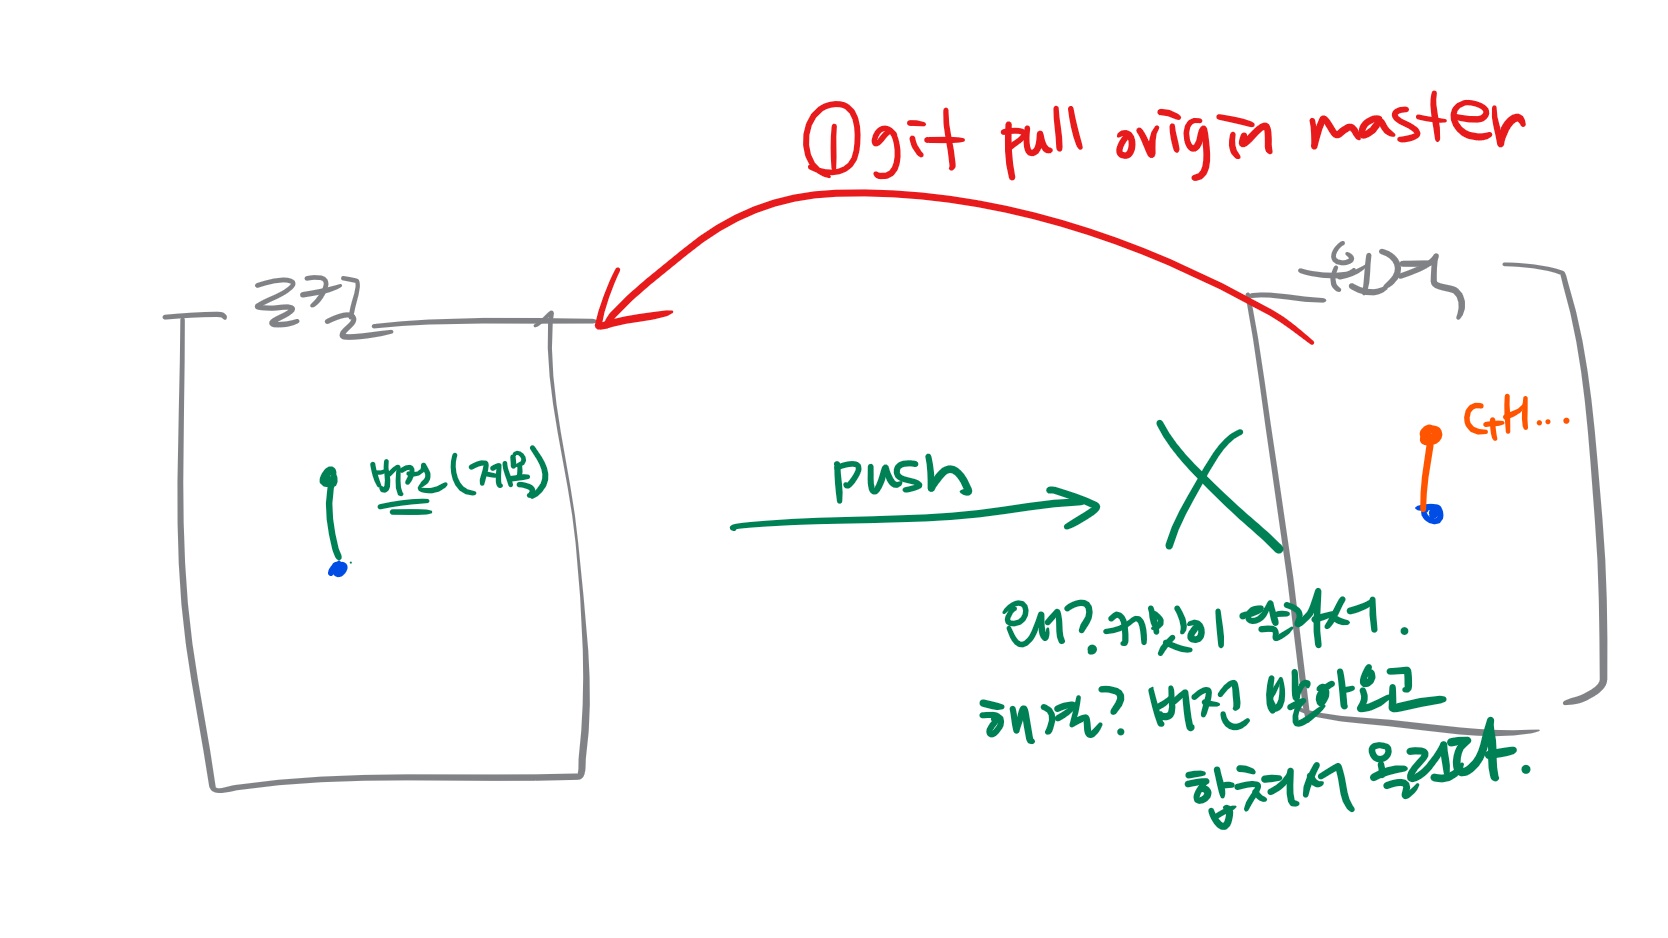 ① git pull origin master
로컬
원격
버전 (제목)
push
GH...
왜? 커밋이 달라서.
해결? 버전 받아오고
합쳐서 올린다.